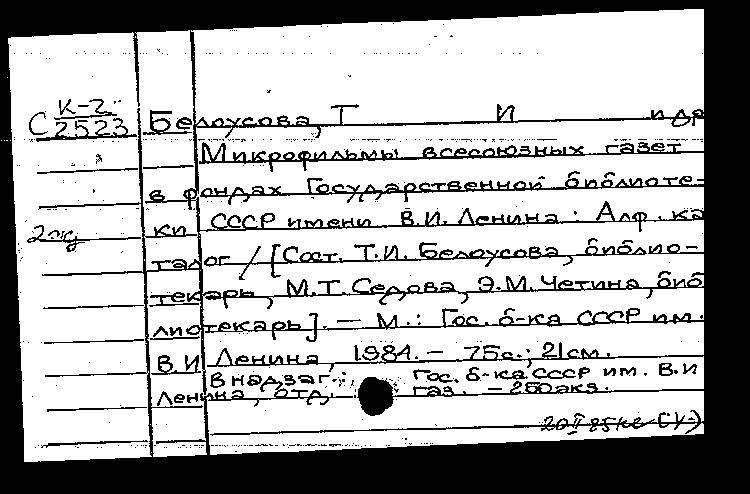 К-2
С 2523 Белоусова, Т И и др
Микрофильмы всесоюзных газет
в фондах Государственной библиоте-
ки СССР имени В.И. Ленина : Алф. ка
талог / [Сост. Т.И. Белоусова, библио-
текарь, М.Т. Седова, Э.М. Четина, биб
лиотекарь]. — М.: Гос. б-ка СССР им.
В.И Ленина, 1984. - 75с.; 21см.
В надзаг.: Гос. б-ка СССР им. В.И
Ленина, отд. газ. - 250 экз.